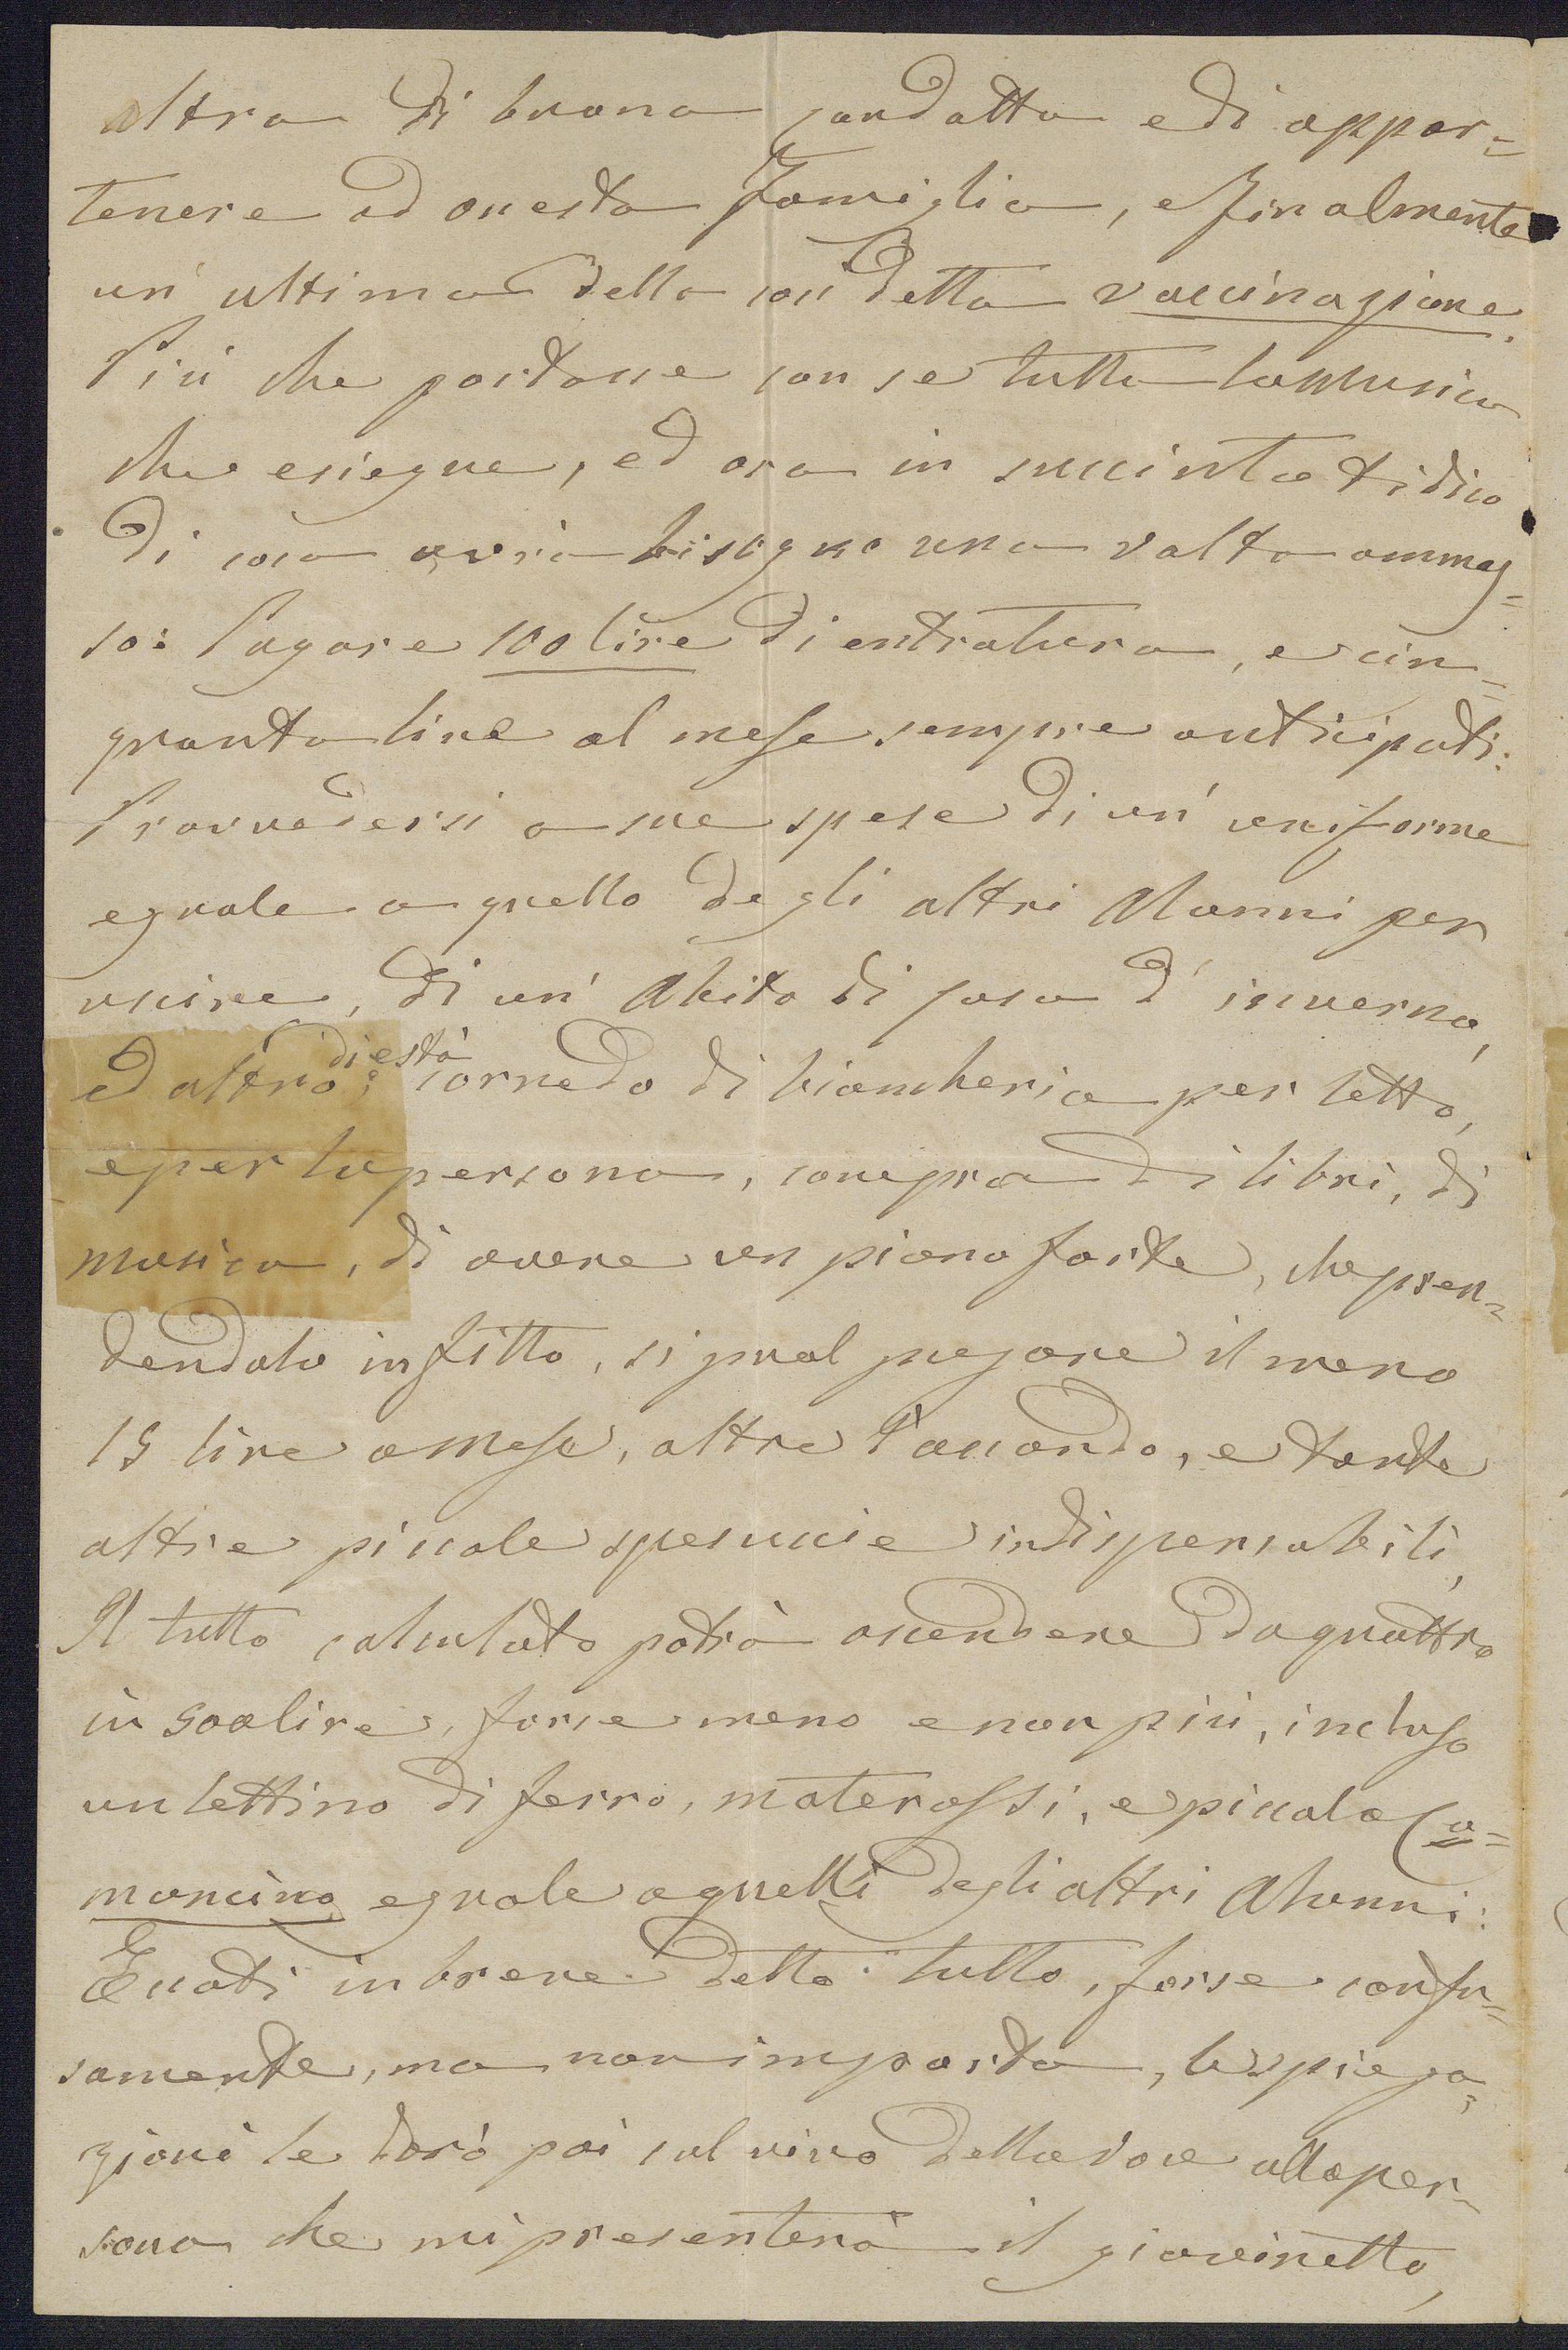 altra di buona condotta e di appar=
tenere ad onesta Famiglia, e finalmente
un' ultima della così detta vaccinazione.
Più che portasse con se tutta la Musica
che esiegue, ed ora in succinto ti dico
di cosa avrà bisogno una volta ammes=
so: Pagare 100 lire di entratura, e cin=
quanta lire al mese sempre anticipati:
Provvedersi a sue spese di un' uniforme
eguale a quello degli altri Alunni per
uscire, di un' Abito di casa d' inverno,
di està
ed altro; corredo di biancheria per letto,
e per la persona, compra di libri, di
musica, di avere un piano forte, che pren=
dendolo in fitto, si puol pagare il meno
15 lire a Mese, oltre l'accordo, e tante
altre piccole spesuccie indispensabili,
Il tutto calculato potrà ascendere da quattro
in 500 lire, forse meno e non più, incluso
un lettino di ferro, materassi, e piccolo Ca=
moncino eguale a quelli degli altri Alunni:
Eccoti in breve detto tutto, forse confu=
samente, ma non importa, le spiega=
zioni le darò poi sul vivo della voce alla per=
sona che mi presenterà il giovinetto,